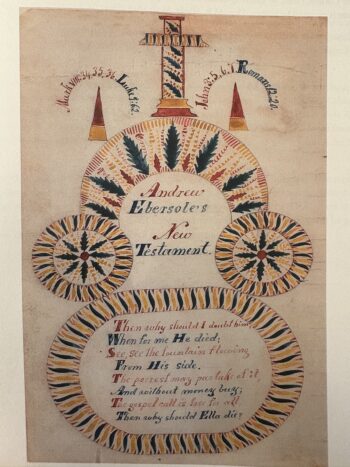 Mark VIII: 34, 35, 36. Luke 9: 62.
John 3: 5, 6, 7. Romans 12: 20.
Andrew
Ebersole's
New
Testament.
Then why should I doubt him,
When for me He died;
See, see the fountain flowing
From His side.
The poorest may partake of it
And without money buy;
The gospel call is for all
Then why should Ella die?